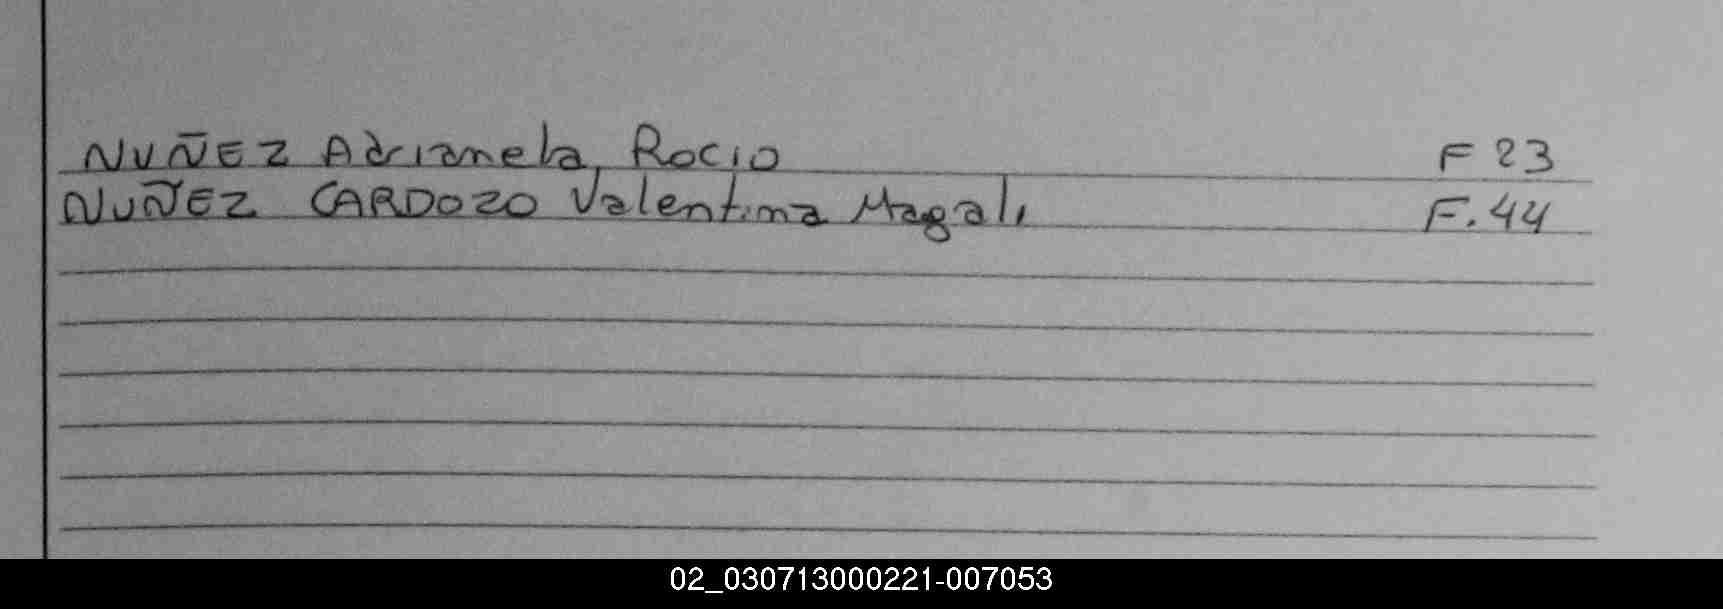 NUÑEZ Adrianela Rocio F 23
NUÑEZ CARDOZO Valentina Magali F. 44
02_030713000221-007053